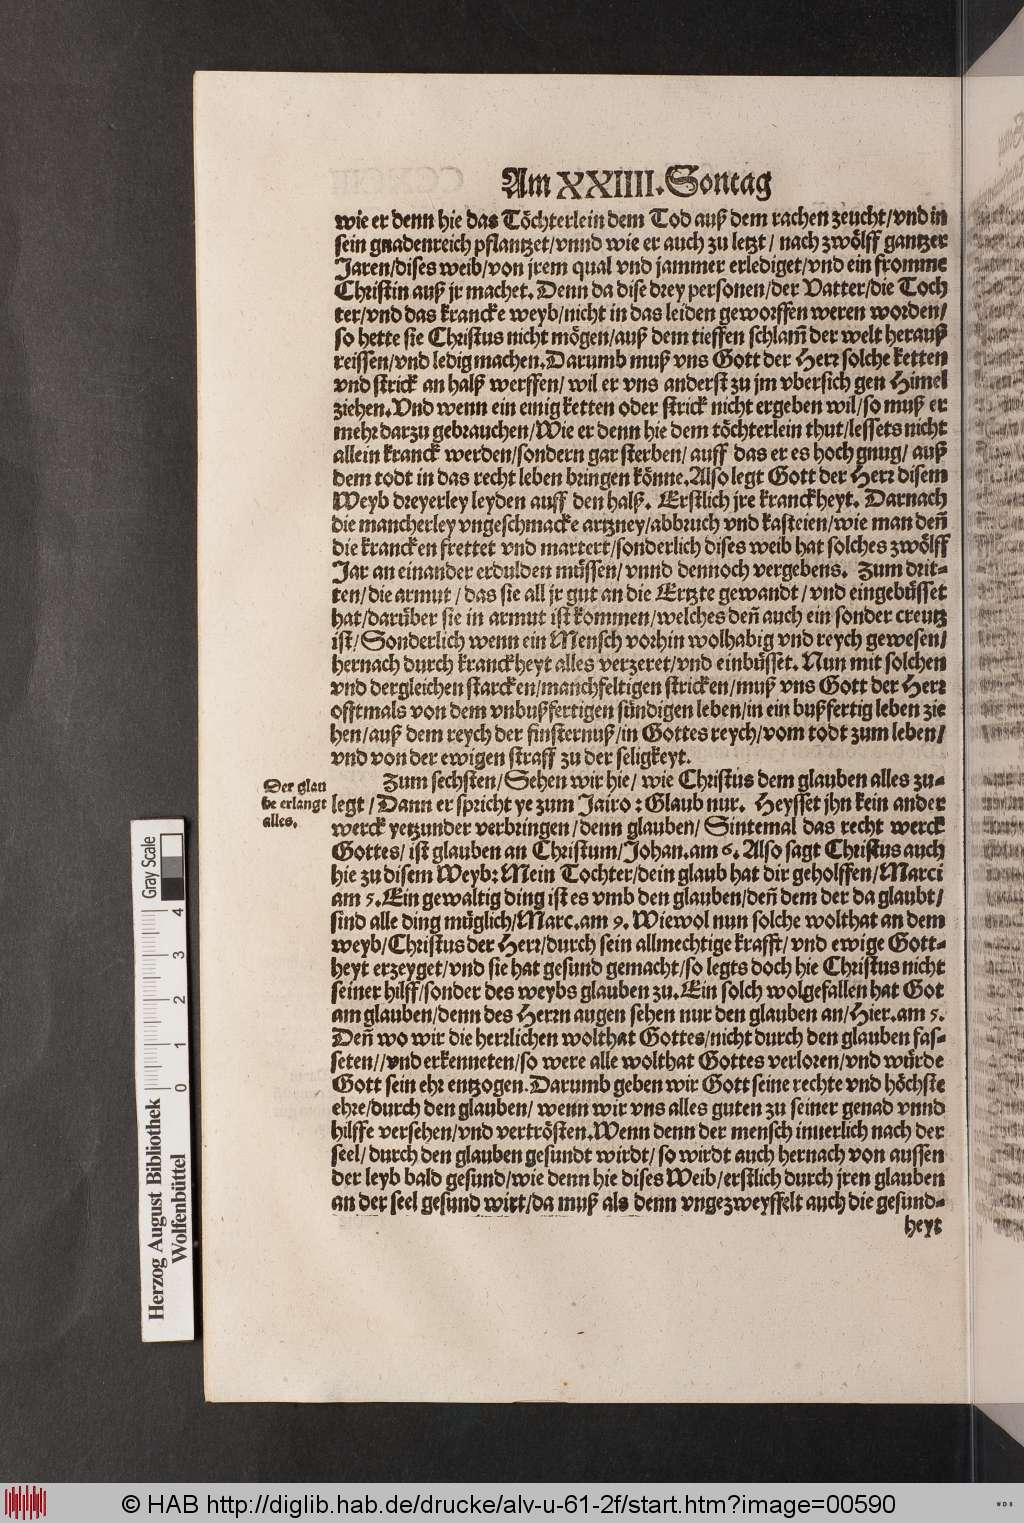 Am XXIIII. Sontag
wie er denn hie das Töchterlein dem Tod auß dem rachen zeucht/vnd in
sein gnadenreich pflantzet/vnnd wie er auch zu letzt/ nach zwölff gantzer
Jaren/dises weib/von jrem qual vnd jammer erlediget/vnd ein fromme
Christin auß jr machet. Denn da dise drey personen/der Vatter/die Toch
ter/vnd das krancke weyb/nicht in das leiden geworffen weren worden/
so hette sie Christus nicht mögen/auß dem tieffen schlam̃ der welt herauß
reissen/vnd ledig machen. Darumb muß vns Gott der Herr solche ketten
vnd strick an halß werffen/ wil er vns anderst zu jm vbersich gen Himel
ziehen. Vnd wenn ein einig ketten oder strick nicht ergeben wil/so muß er
mehr darzu gebrauchen/Wie er denn hie dem töchterlein thut/lessets nicht
allein kranck werden/sondern gar sterben/ auff das er es hoch gnug/ auß
dem todt in das recht leben bringen könne. Also legt Gott der Herr disem
Weyb dreyerley leyden auff den halß. Erstlich jre kranckheyt. Darnach
die mancherley vngeschmacke artzney/abbruch vnd kasteien/wie man deñ
die krancken frettet vnd martert/sonderlich dises weib hat solches zwölff
Jar an einander erdulden müssen/vnnd dennoch vergebens. Zum drit-
ten/die armut/das sie all jr gut an die Ertzte gewandt/vnd eingebüsset
hat/darüber sie in armut ist kommen/welches deñ auch ein sonder creutz
ist/Sonderlich wenn ein Mensch vorhin wolhabig vnd reych gewesen/
hernach durch kranckheyt alles verzeret/vnd einbüsset. Nun mit solchen
vnd dergleichen starcken/manchfeltigen stricken/muß vns Gott der Herr
offtmals von dem vnbußfertigen sündigen leben/in ein bußfertig leben zie
hen/auß dem reych der finsternuß/in Gottes reych/vom todt zum leben/
vnd von der ewigen straff zu der seligkeyt.
Der glau
be erlangt
alles.
Zum sechsten/Sehen wir hie/ wie Christus dem glauben alles zu-
legt/Dann er spricht ye zum Jairo: Glaub nur. Heysset jhn kein ander
werck yetzunder verbringen/denn glauben/ Sintemal das recht werck
Gottes/ ist glauben an Christum/Johan. am 6. Also sagt Christus auch
hie zu disem Weyb: Mein Tochter/dein glaub hat dir geholffen/Marci
am 5. Ein gewaltig ding ist es vmb den glauben/deñ dem der da glaubt/
sind alle ding müglich/Marc. am 9. Wiewol nun solche wolthat an dem
weyb/Christus der Herr/durch sein allmechtige krafft/vnd ewige Gott-
heyt erzeyget/vnd sie hat gesund gemacht/so legts doch hie Christus nicht
seiner hilff/sonder des weybs glauben zu. Ein solch wolgefallen hat Got
am glauben/denn des Herrn augen sehen nur den glauben an/Hier. am 5.
Deñ wo wir die herrlichen wolthat Gottes/nicht durch den glauben fas-
seten//vnd erkenneten/so were alle wolthat Gottes verloren/vnd würde
Gott sein ehr entzogen. Darumb geben wir Gott seine rechte vnd höchste
ehre/durch den glauben/ wenn wir vns alles guten zu seiner genad vnnd
hilffe versehen/vnd vertrösten. Wenn denn der mensch innerlich nach der
seel/durch den glauben gesundt wirdt/ so wirdt auch hernach von aussen
der leyb bald gesund/wie denn hie dises Weib/erstlich durch jren glauben
an der seel gesund wirt/da muß als denn vngezweyffelt auch die gesund-
heyt
Gray Scale
0 1 2 3 4
Herzog August Bibliothek
Wolfenbüttel
© HAB http://diglib.hab.de/drucke/alv-u-61-2f/start.htm?image=00590